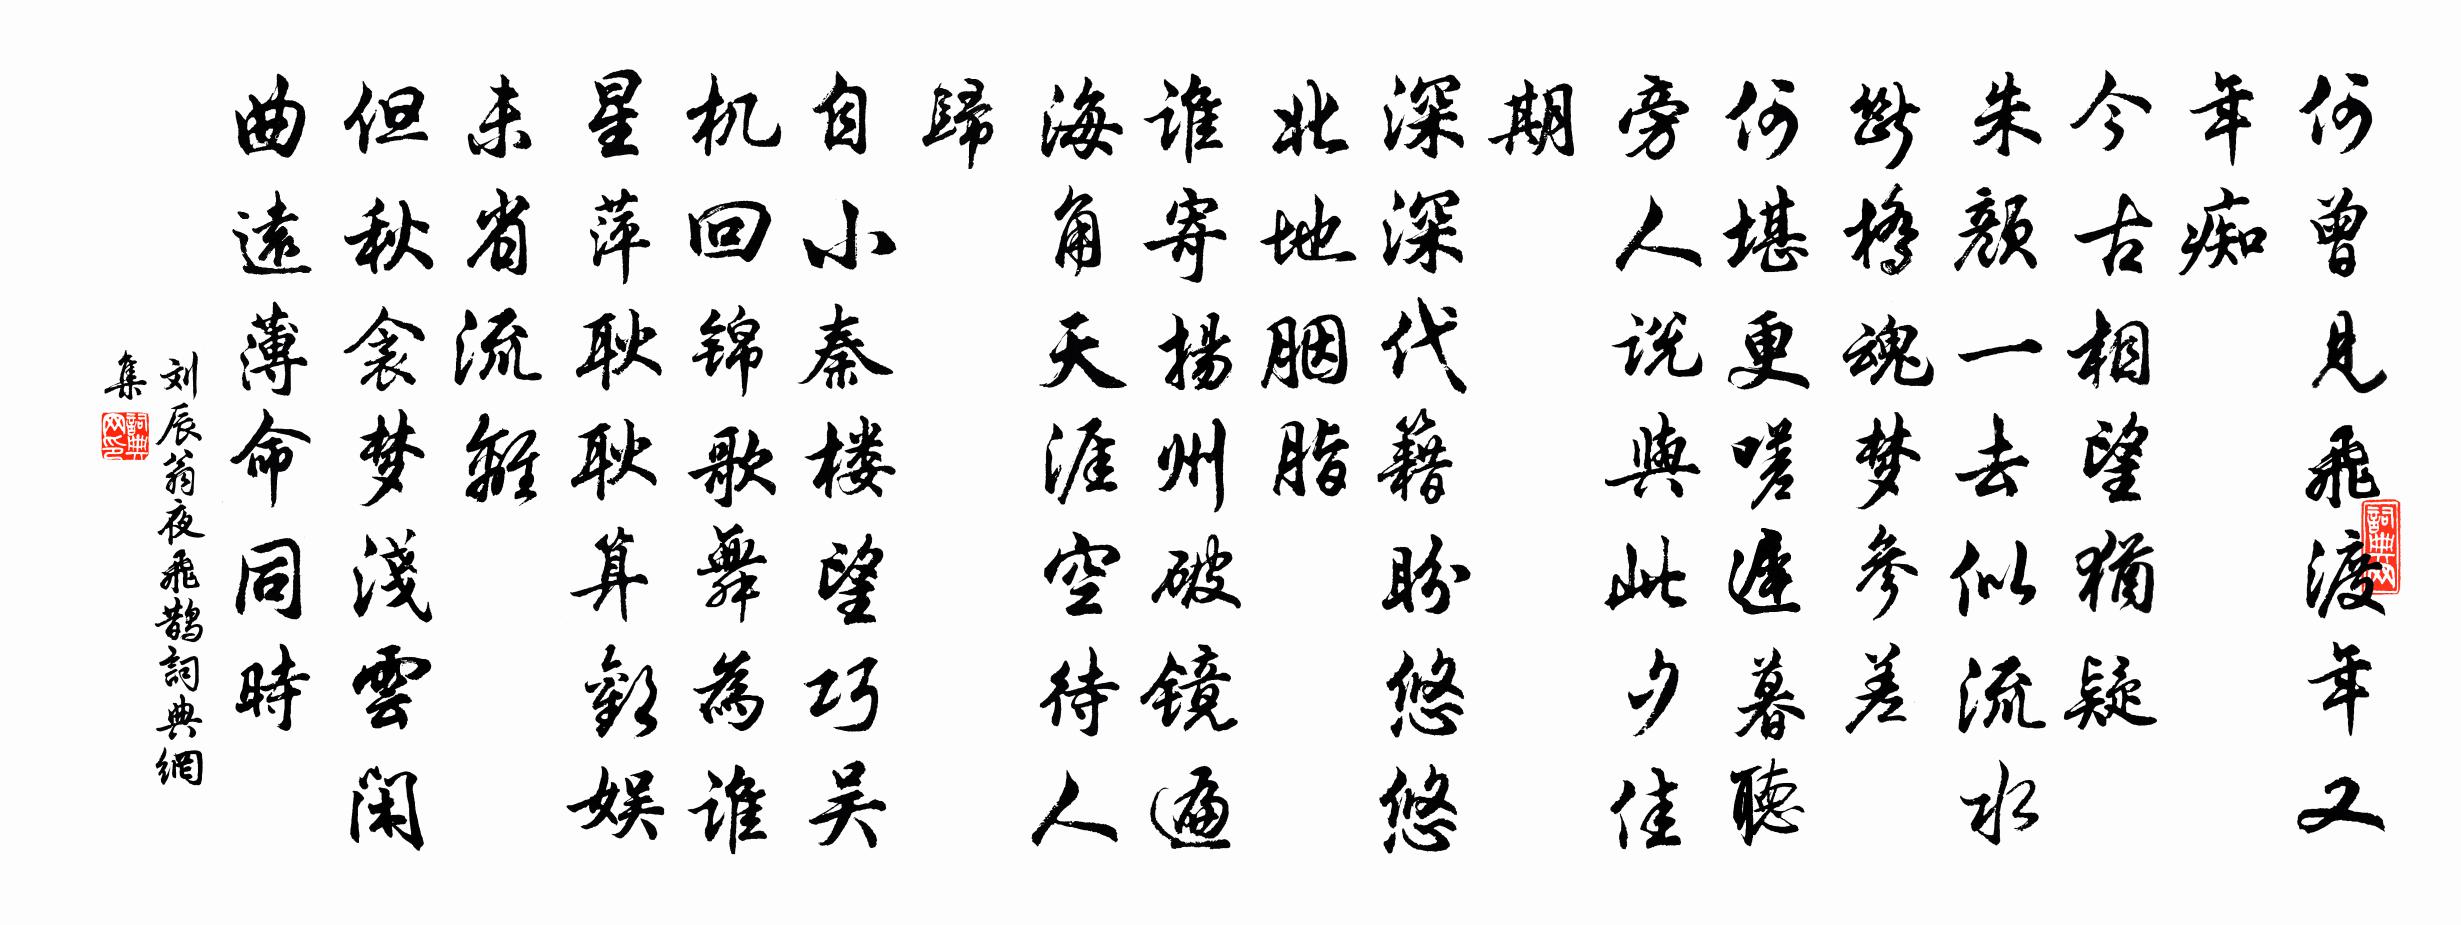 何曾見飛渡年年又
年痴
今古相望猶疑
朱顏一去似流水
斷橋魂梦參差
何堪更嗟遲暮聽
旁人说與此夕佳
期
深深代籍盼悠悠
北地胭脂
谁寄揚州破镜遍
海角天涯空待人
歸
自小秦楼望巧吴
机回锦歌舞為谁
星萍耿耿算歡娱
未省流離
但秋衾梦淺雲闲
曲遠薄命同時
刘辰翁夜飛鹊詞典網
集